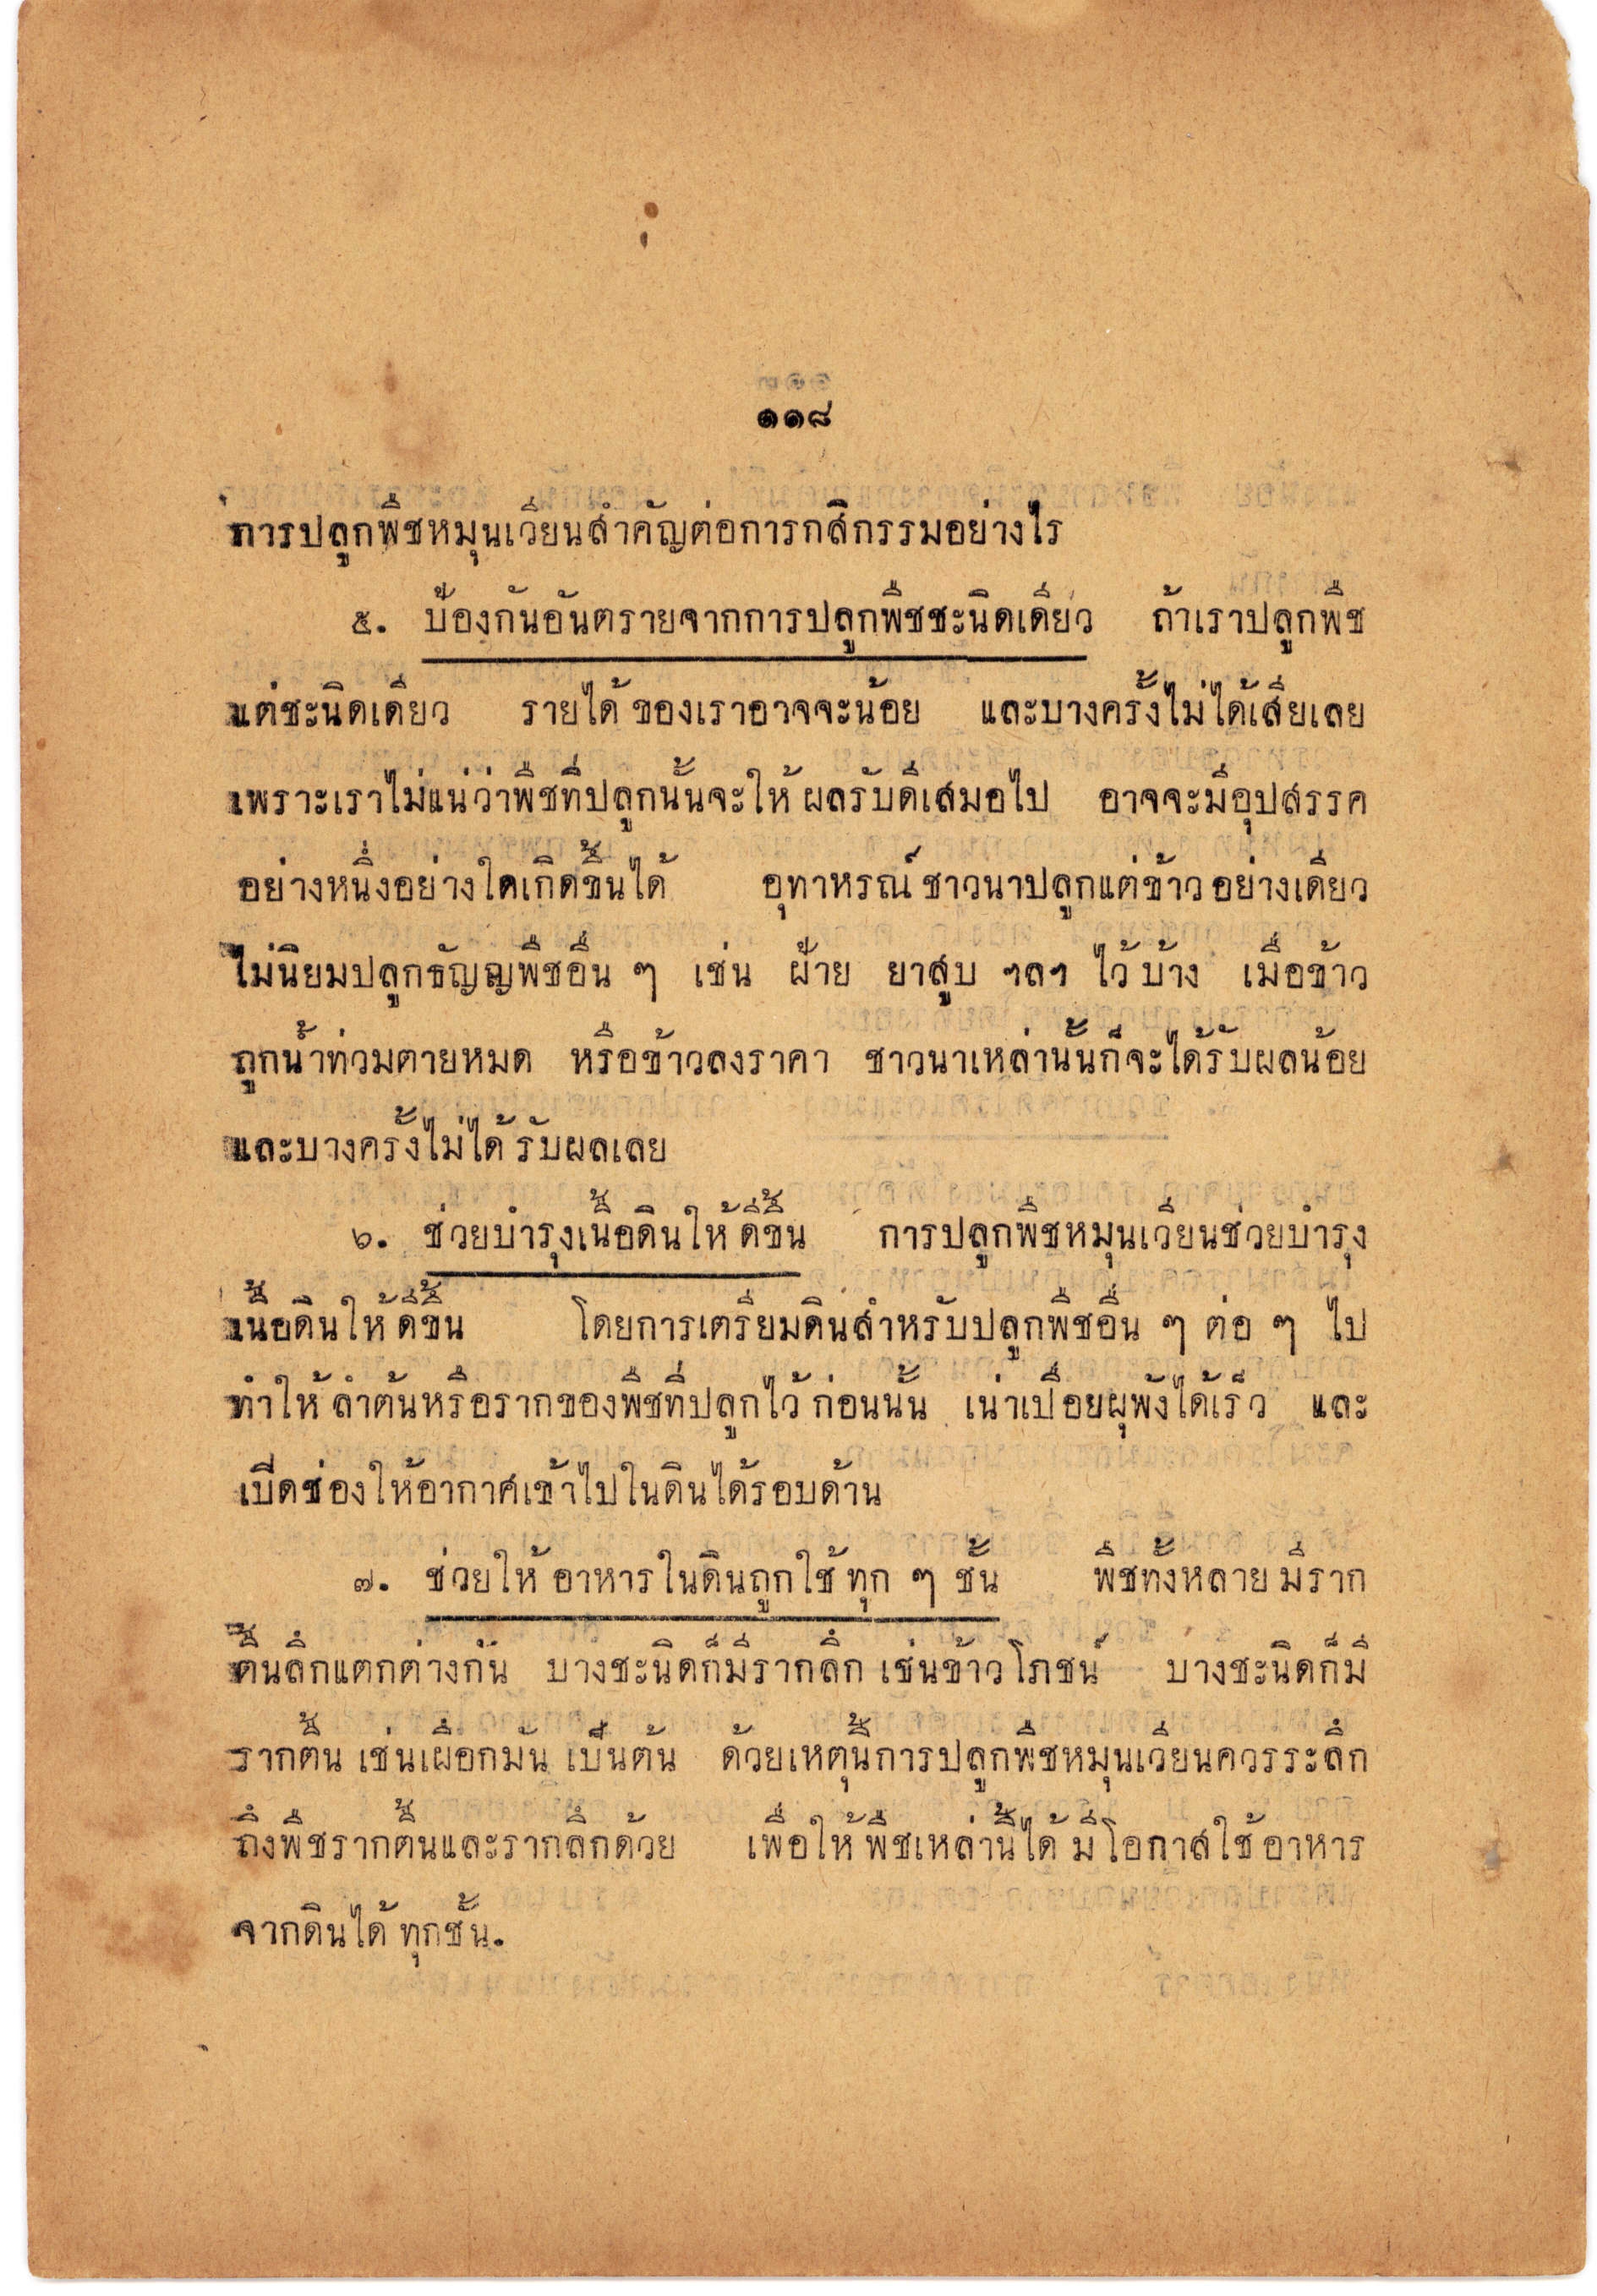 ๑๑๘
การปลูกพืชหมุนเวียนสำคัญต่อการกสิกรรมอย่างไร
๕. ป้องกันอันตรายจากการปลูกพืชชะนิดเดียว ถ้าเราปลูกพืช
แต่ชะนิดเดียว รายได้ของเราอาจจะน้อย และบางครั้งไม่ได้เสียเลย
เพราะเราไม่แน่ว่าพืชที่ปลูกนั้นจะให้ผลรับดีเสมอไป อาจจะมีอุปสรรค
อย่างหนึ่งอย่างใดเกิดขึ้นได้ อุทาหรณ์ ชาวนาปลูกแต่ข้าวอย่างเดียว
ไม่นิยมปลูกธัญญพืชอื่น ๆ เช่น ฝ้าย ยาสูบ ฯลฯ ไว้บ้าง เมื่อข้าว
ถูกน้ำท่วมตายหมด หรือข้าวลงราคา ชาวนาเหล่านั้นก็จะได้รับผลน้อย
และบางครั้งไม่ได้รับผลเลย
๖. ช่วยบำรุงเนื้อดินให้ดีขึ้น การปลูกพืชหมุนเวียนช่วยบำรุง
เนื้อดินให้ดีขึ้น โดยการเตรียมดินสำหรับปลูกพืชอื่น ๆ ต่อ ๆ ไป
ทำให้ลำต้นหรือรากของพืชที่ปลูกไว้ก่อนนั้น เน่าเปื่อยผุพังได้เร็ว และ
เปิดช่องให้อากาศเข้าไปในดินได้รอบด้าน
๗. ช่วยให้อาหารในดินถูกใช้ทุก ๆ ชั้น พืชทั้งหลายมีราก
ตื้นลึกแตกต่างกัน บางชะนิดก็มีรากลึก เช่นข้าวโภชน์ บางชะนิดก็มี
รากตื้น เช่นเผือกมัน เป็นต้น ด้วยเหตุนี้การปลูกพืชหมุนเวียนควรระลึก
ถึงพืชรากตื้นและรากลึกด้วย เพื่อให้พืชเหล่านี้ได้มีโอกาสใช้อาหาร
จากดินได้ทุกชั้น.